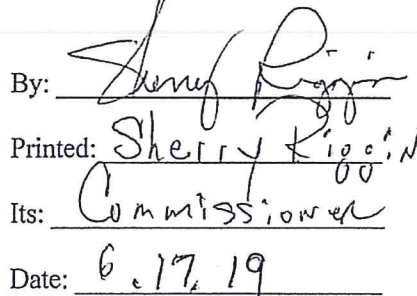 By: Sherry Riggin
Printed: Sherry Riggin
Its: Commissioner
Date: 6.17.19